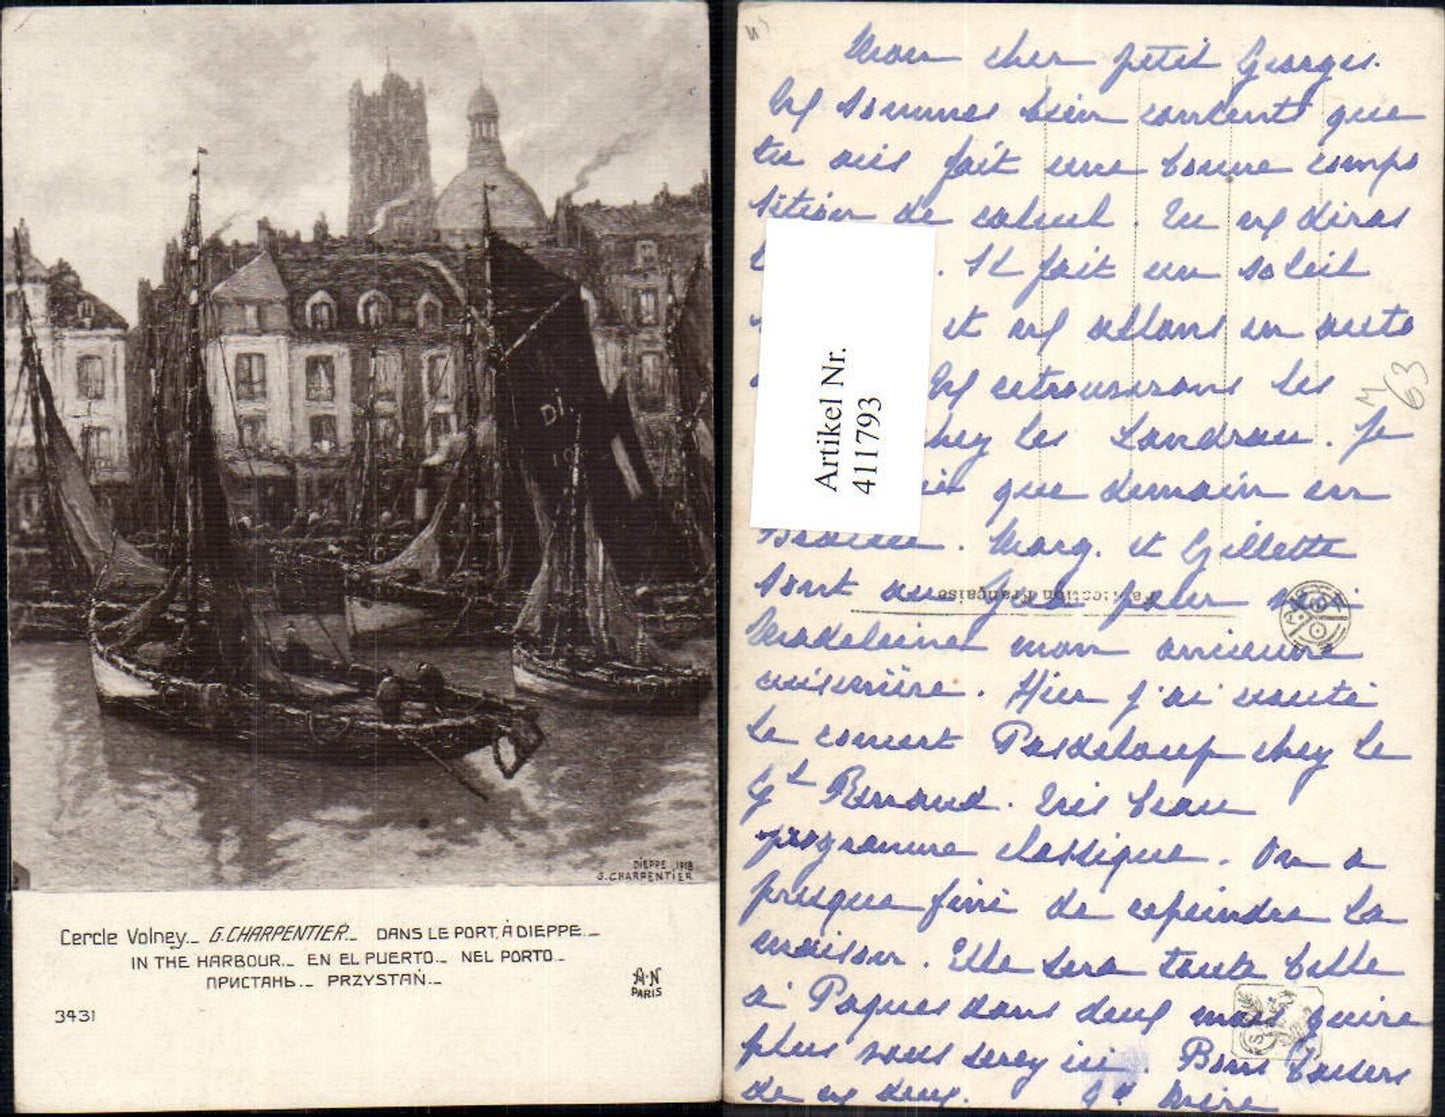 DIEPPE 1918
G. CHARPENTIER
Cercle Volney._ G. CHARPENTIER._ DANS LE PORT, À DIEPPE._
IN THE HARBOUR._ EN EL PUERTO._ NEL PORTO_
ПРИСТАНЬ._ PRZYSTAŃ._
A·N
PARIS
3431
Mon cher petit Georges.
sommes bien contents que
tu aies fait une bonne compo
sition de calcul. Tu diras
. Il fait un soleil
et allons en auto
retrouverons les
chez les Landrau. Je
que demain en
. Marg. et Gillette
sont au pour
Madeleine mon ancienne
cuisinière. Hier j'ai écouté
le concert Pasdeloup chez le
Gd Renaud. Très beau
programme classique. On a
presque fini de repeindre la
maison. Elle sera toute belle
à Pâques dans deux mois guère
plus vous serez ici. Bons baisers
de deux. Gd Mère
Artikel Nr.
411793
Fabrication Française
M
63